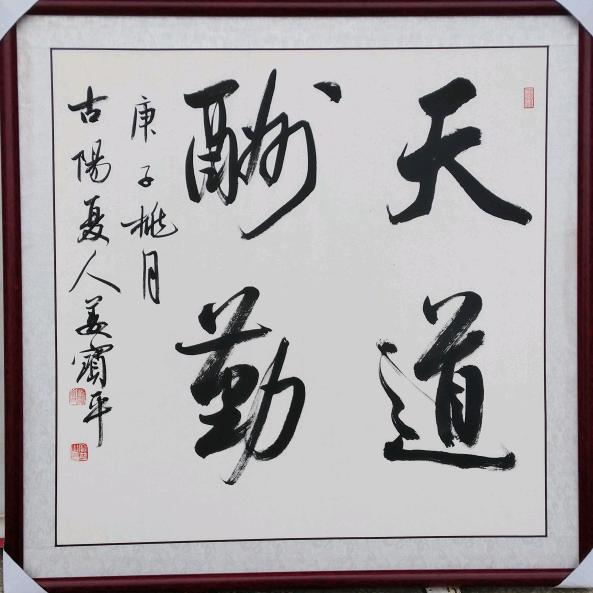 天道
酬勤
庚子桃月
古陽夏人姜寶平